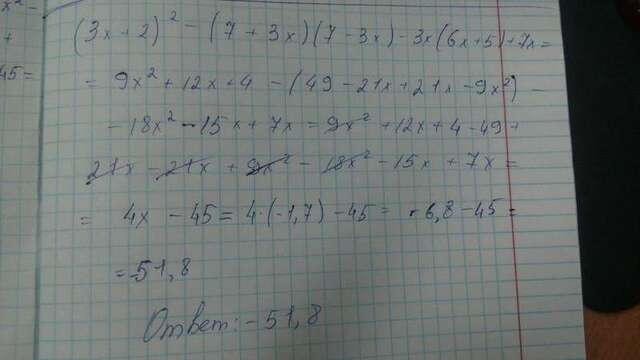 x² -
+
45 =
(3x + 2)² - (7 + 3x)(7 - 3x) - 3x(6x + 5) + 7x =
= 9x² + 12x + 4 - (49 - 21x + 21x - 9x²) -
- 18x² - 15x + 7x = 9x² + 12x + 4 - 49 +
21x - 21x + 9x² - 18x² - 15x + 7x =
= 4x - 45 = 4·(-1,7) - 45 = - 6,8 - 45 =
= -51,8
Ответ: -51,8